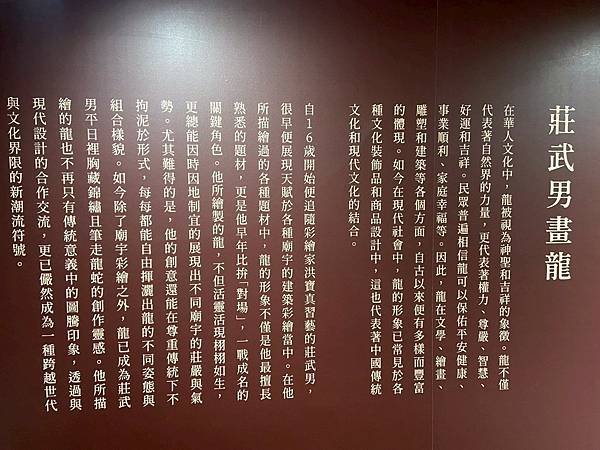 莊武男畫龍
在華人文化中，龍被視為神聖和吉祥的象徵。龍不僅
代表著自然界的力量，更代表著權力、尊嚴、智慧、
好運和吉祥。民眾普遍相信龍可以保佑平安健康、
事業順利、家庭幸福等。因此，龍在文學、繪畫、
雕塑和建築等各個方面，自古以來便有多樣而豐富
的體現。如今在現代社會中，龍的形象已常見於各
種文化裝飾品和商品設計中，這也代表著中國傳統
文化和現代文化的結合。
自16歲開始便追隨彩繪家洪寶真習藝的莊武男，
很早便展現天賦於各種廟宇的建築彩繪當中。在他
所描繪過的各種題材中，龍的形象不僅是他最擅長
熟悉的題材，更是他早年比拚「對場」，一戰成名的
關鍵角色。他所繪製的龍，不但活靈活現栩栩如生，
更總能因時因地制宜的展現出不同廟宇的莊嚴與氣
勢。尤其難得的是，他的創意還能在尊重傳統下不
拘泥於形式，每每都能自由揮灑出龍的不同姿態與
組合樣貌。如今除了廟宇彩繪之外，龍已成為莊武
男平日裡胸藏錦繡且筆走龍蛇的創作靈感。他所描
繪的龍也不再只有傳統意義中的圖騰印象，透過與
現代設計的合作交流，更已儼然成為一種跨越世代
與文化界限的新潮流符號。